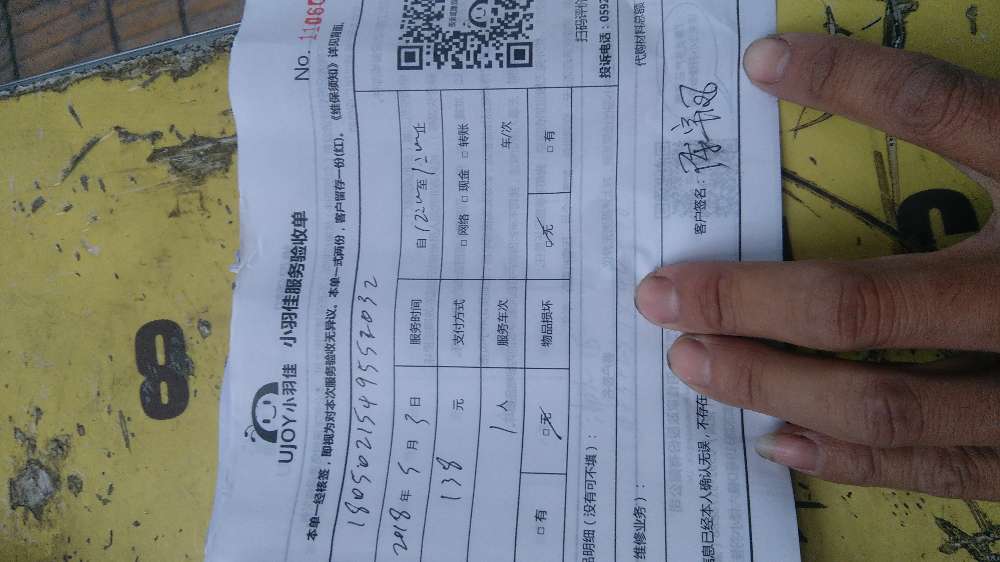 No. 1106
UJOY小羽佳 小羽佳服务验收单
本单一经核签，即视为对本次服务验收无异议。本单一式两份，客户留存一份(红)，《维保须知》详见背面
1805021549552032
2018年5月3日 服务时间 自12:00至1:00止
138元 支付方式 □网络 □现金 □转账
1人 服务车次 车/次
□有 □无 物品损坏 □无 □有
品明细（没有可不填）：
扫码评价
投诉电话：0592
维修业务）：
代购材料总额
信息已经本人确认无误，不存在
客户签名：
8